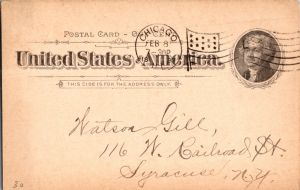 POSTAL CARD - 
CHICAGO
FEB 8
7-30P
United States of America.
THIS SIDE IS FOR THE ADDRESS ONLY.
Watson Gill,
116 W. Railroad St.
Syracuse, N.Y.